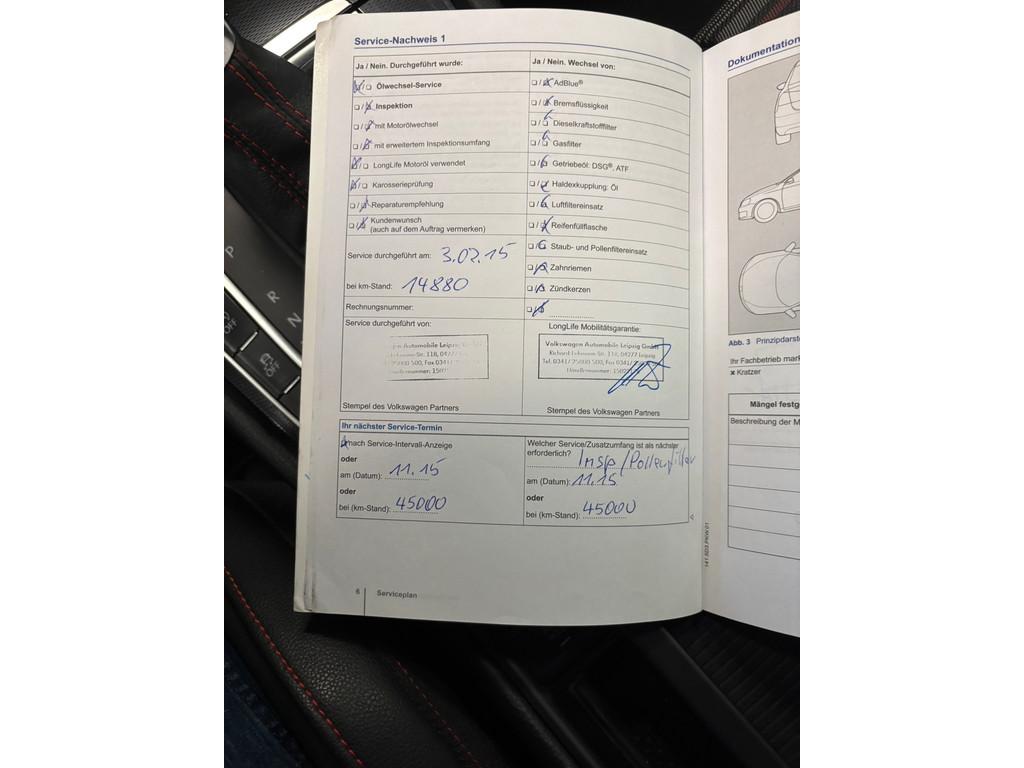 Service-Nachweis 1
Ja / Nein. Durchgeführt wurde:
☒/☐ Ölwechsel-Service
☐/☒ Inspektion
☐/☒ mit Motorölwechsel
☐/☒ mit erweitertem Inspektionsumfang
☒/☐ LongLife Motoröl verwendet
☒/☐ Karosserieprüfung
☐/☒ Reparaturempfehlung
☐/☒ Kundenwunsch
(auch auf dem Auftrag vermerken)
Service durchgeführt am: 3.02.15
bei km-Stand: 14880
Rechnungsnummer:
Service durchgeführt von:
Automobile Leipzig
Str. 118, 04277
500, Fax 0341/
Stempel des Volkswagen Partners
Ja / Nein. Wechsel von:
☐/☒ AdBlue®
☐/☒ Bremsflüssigkeit
☐/☒ Dieselkraftstofffilter
☐/☒ Gasfilter
☐/☒ Getriebeöl: DSG®, ATF
☐/☒ Haldexkupplung: Öl
☐/☒ Luftfiltereinsatz
☐/☒ Reifenfüllflasche
☐/☒ Staub- und Pollenfiltereinsatz
☐/☒ Zahnriemen
☐/☒ Zündkerzen
☐/☒ ....................
LongLife Mobilitätsgarantie:
Volkswagen Automobile Leipzig GmbH
Str. 118, 04277 Leipzig
Tel. 0341/ 500, Fax 0341/
Händlernummer:
Stempel des Volkswagen Partners
Ihr nächster Service-Termin
☒ nach Service-Intervall-Anzeige
oder
am (Datum): 11.15
oder
bei (km-Stand): 45000
Welcher Service/Zusatzumfang ist als nächster
erforderlich? Insp/Pollenfilter
am (Datum): 11.15
oder
bei (km-Stand): 45000
6 Serviceplan
141.5D3.PKW.01
Dokumentation
Abb. 3 Prinzipdarst
Ihr Fachbetrieb mark
✖ Kratzer
Mängel festg
Beschreibung der M
P
R
N
OFF
OFF